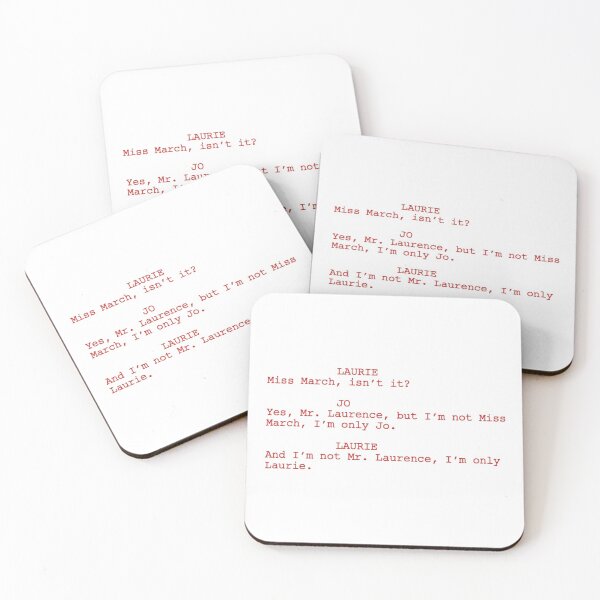 LAURIE
Miss March, isn't it?
JO
Yes, Mr. but I'm not
March, I'm
I'm
LAURIE
Miss March, isn't it?
JO
Yes, Mr. Laurence, but I'm not Miss
March, I'm only Jo.
LAURIE
And I'm not Mr. Laurence, I'm only
Laurie.
LAURIE
Miss March, isn't it?
JO
Yes, Mr. Laurence, but I'm not Miss
March, I'm only Jo.
LAURIE
And I'm not Mr. Laurence
Laurie.
LAURIE
Miss March, isn't it?
JO
Yes, Mr. Laurence, but I'm not Miss
March, I'm only Jo.
LAURIE
And I'm not Mr. Laurence, I'm only
Laurie.